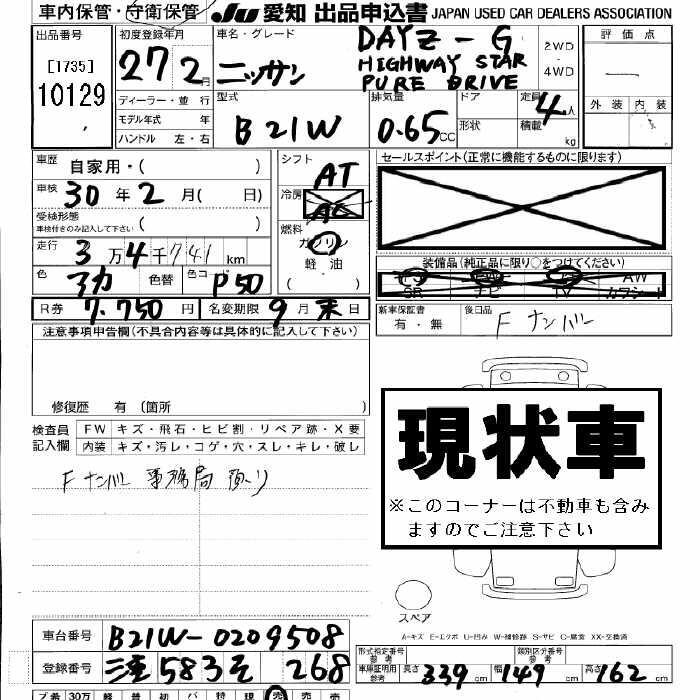 車内保管・守衛保管 JU 愛知 出品申込書 JAPAN USED CAR DEALERS ASSOCIATION
出品番号
[1735]
10129
初度登録年月
27年2月
車名・グレード
ニッサン
DAYZ-G
HIGHWAY STAR
PURE DRIVE
2WD
・
4WD
評価点
外装 内装
ディーラー・並行
モデル年式 年
ハンドル 左・右
型式
B21W
排気量
0.65CC
ドア
形状
定員 4人
積載 kg
車歴
自家用・( )
車検 30年2月( 日)
受検形態
車検付きのみ記入して下さい ( )
走行 3万4千741km
色 アカ 色替 色コード P50
R券 7.750円 名変期限 9月末日
シフト
AT
冷房
AC
燃料
ガソリン
・
軽・油
( )
セールスポイント(正常に機能するものに限ります)
装備品(純正品に限り○をつけてください)
AW
SR ナビ TV カワシート
新車保証書
有・無
後日品
Fナンバー
注意事項申告欄(不具合内容等は具体的に記入して下さい)
修復歴 有 (箇所 )
検査員
記入欄
FW キズ・飛石・ヒビ割・リペア跡・X要
内装 キズ・汚レ・コゲ・穴・スレ・キレ・破レ
Fナンバー 事務局 預り
現状車
※このコーナーは不動車も含み
ますのでご注意下さい
スペア
A-キズ E-エクボ U-凹み W-補修跡 S-サビ C-腐食 XX-交換済
車台番号 B21W-0209508
登録番号 三重 583 そ 268
形式指定番号
参考
類別区分番号
参考
車庫証明用
参考
長さ 339cm 幅 149cm 高さ 162cm